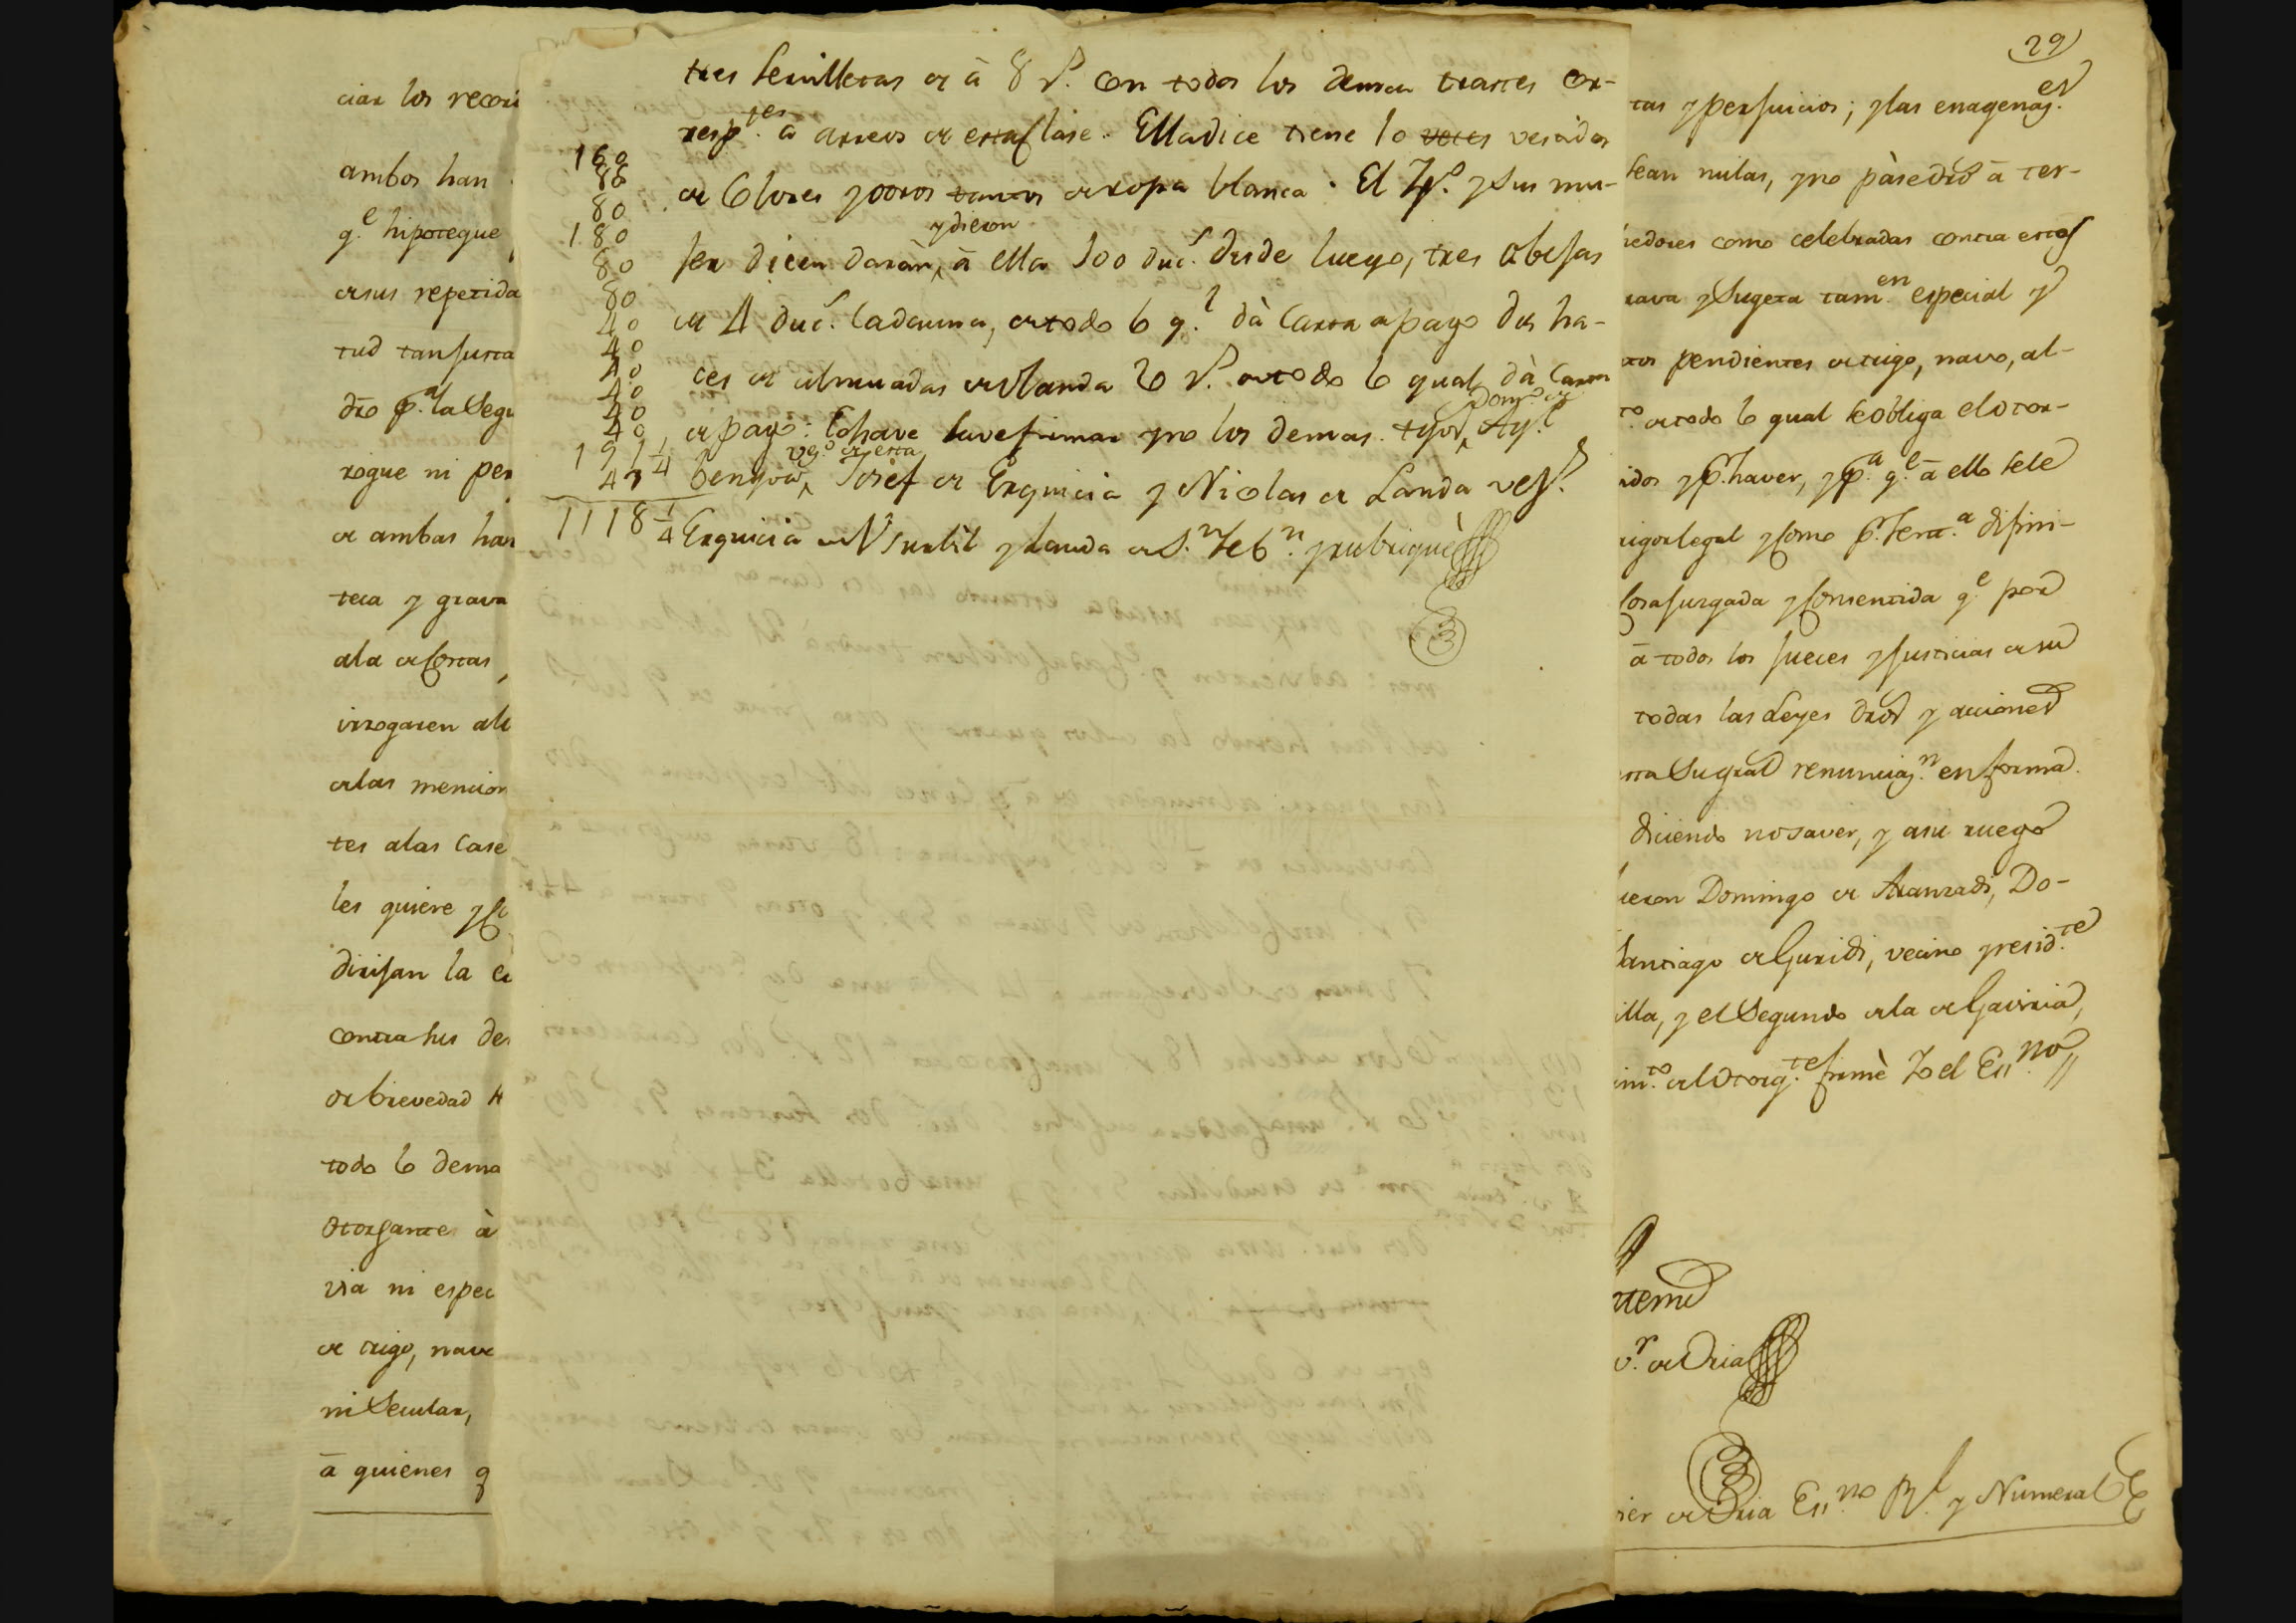 ciar los recur
ambos han
q.e hipoteque
de sus repetida
tud tan justa
dro p.a la Segu
rogue ni per
de ambas han
teca y grava
ala de Cortas,
irrogaren ale
de las mencion
tes a las Case
les quiere y Co
dirijan la e
contra sus de
de brevedad
todo lo dema
Otorgante à
via ni espec
de trigo, nave
ni Secular,
à quienes q
tres servilletas de à 8 r.s con todos los demas trastes cor-
resp.tes a arreos de esta Clase. Ella dice tiene 10 vestidos
de Colores y otros tantos de ropa blanca. El Yº. y sus mu-
jer dicen daràn, y dieron à ella 100 duc.s desde luego, tres obejas
de 4 duc.s cada una, de todo lo q.l dà Carta de pago dos ha-
ces de almuadas de Olanda 20 r.s de todo lo qual dà Carta
de pago: Echave save firmar y no los demas. tgos, Dom.o de Ag.e
Bengoa, vez.o de esta Josef de Erquicia y Nicolas de Landa vez.s
Erquicia de Usurbil y Landa de S.n Seb.n y rubriquè
160
88
80
180
80
80
40
40
40
40
40
40
191 1/4
47
1118 1/4
29
tas y perjuicios; y las enagenaz.es
sean nulas, y no pàse dro à ter-
eedores como celebradas contra estas
rava y Sugeta tam.en especial y
tos pendientes de trigo, navo, al-
to. de todo lo qual se obliga el otor-
idos y p.r haver, y p.a q.e à ello se le
rigor legal y Como p.r Sent.a difini-
Cosa juzgada y Consentida q.e por
à todos los jueces y justicias de su
todas las Leyes dros y acciones
sta Su gral renunciaz.n en forma.
diciendo no saver, y a su ruego
ueron Domingo de Aranzadi, Do-
Santiago de Guridi, vecino y resid.te
illa, y el Segundo de la de Gaviria,
im.to del Otorg.te firmè Yo el Ess.no
v.r de Oria
ier de Oria Ess.no R.l y Numeral